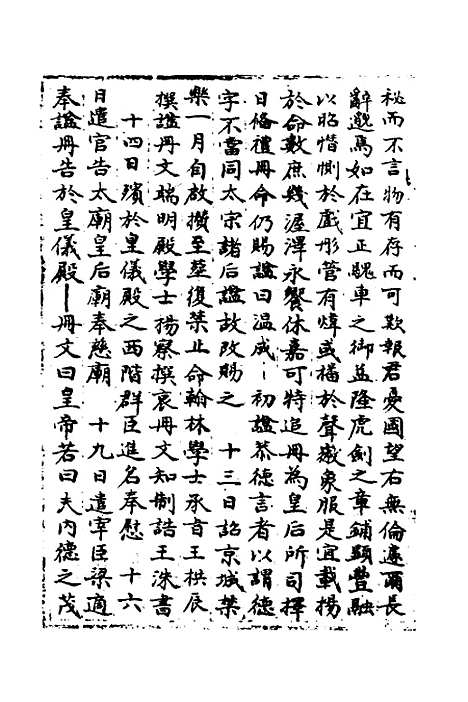 祕而不言物有存而可欺報君憂國望右無倫遽爾長
辭邈焉如在宜正騩車之御益隆虎劍之章鋪顯豐融
以昭惜惻於戲彤管有煒或播於聲徽象服是宜載揚
於命數庶幾渥澤永饗休嘉可特追冊為皇后所司擇
日俻禮冊命仍賜諡曰温成初諡恭德言者以謂德
字不當同太宗諸后諡故改賜之 十三日詔京城禁
樂一月自啟攢至塟復禁止命翰林學士承旨王拱辰
撰諡冊文端明殿學士揚察撰哀冊文知制誥王洙書
十四日殯於皇儀殿之西階群臣進名奉慰 十六
日遣官告太廟皇后廟奉慈廟 十九日遣宰臣梁適
奉諡冊告於皇儀殿冊文曰皇帝若曰夫内德之茂